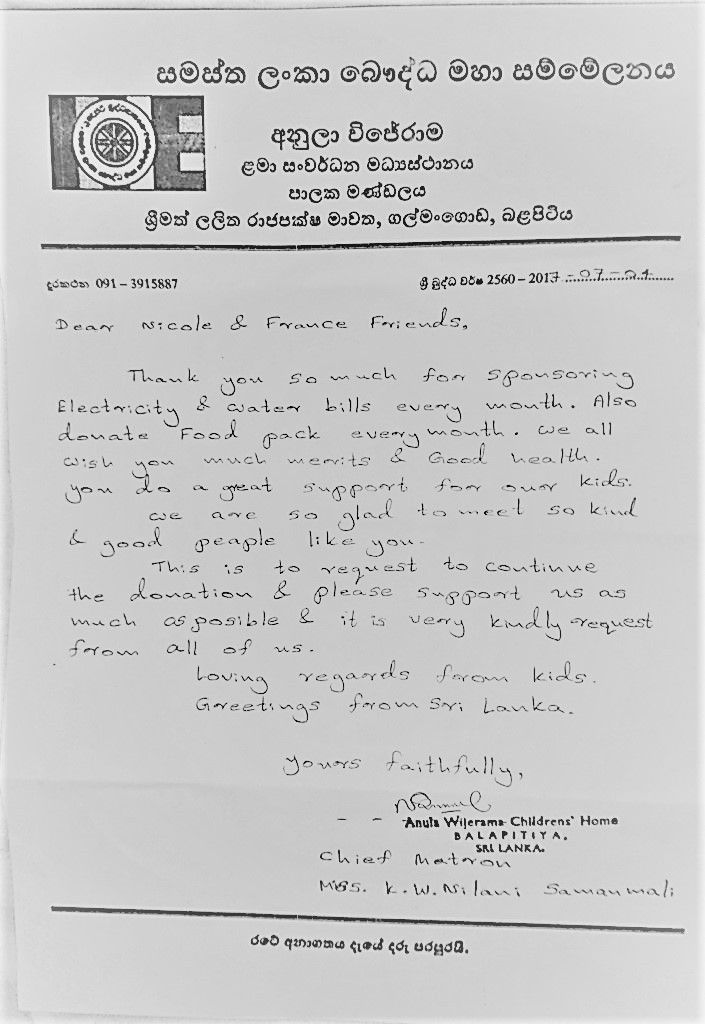 සමස්ත ලංකා බෞද්ධ මහා සම්මේලනය
අනුලා විජේරාම
ළමා සංවර්ධන මධ්‍යස්ථානය
පාලක මණ්ඩලය
ශ්‍රීමත් ලලිත රාජපක්ෂ මාවත, ගල්මංගොඩ, බළපිටිය
දුරකථන 091 – 3915887
ශ්‍රී බුද්ධ වර්ෂ 2560 – 2017-07-21
Dear Nicole & France Friends,
Thank you so much for sponsoring
Electricity & water bills every month. Also
donate Food pack every month. we all
wish you much merits & Good health.
you do a great support for our kids.
we are so glad to meet so kind
& good peaple like you.
This is to request to continue
the donation & please support us as
much as posible & it is very kindly request
from all of us.
Loving regards from kids.
Greetings from Sri Lanka.
Yours faithfully,
Anula Wijerama Childrens' Home
BALAPITIYA.
SRI LANKA.
Chief Matron
K.W. Nilani Samanmali
රටේ අනාගතය දැයේ දරු පරපුරයි.